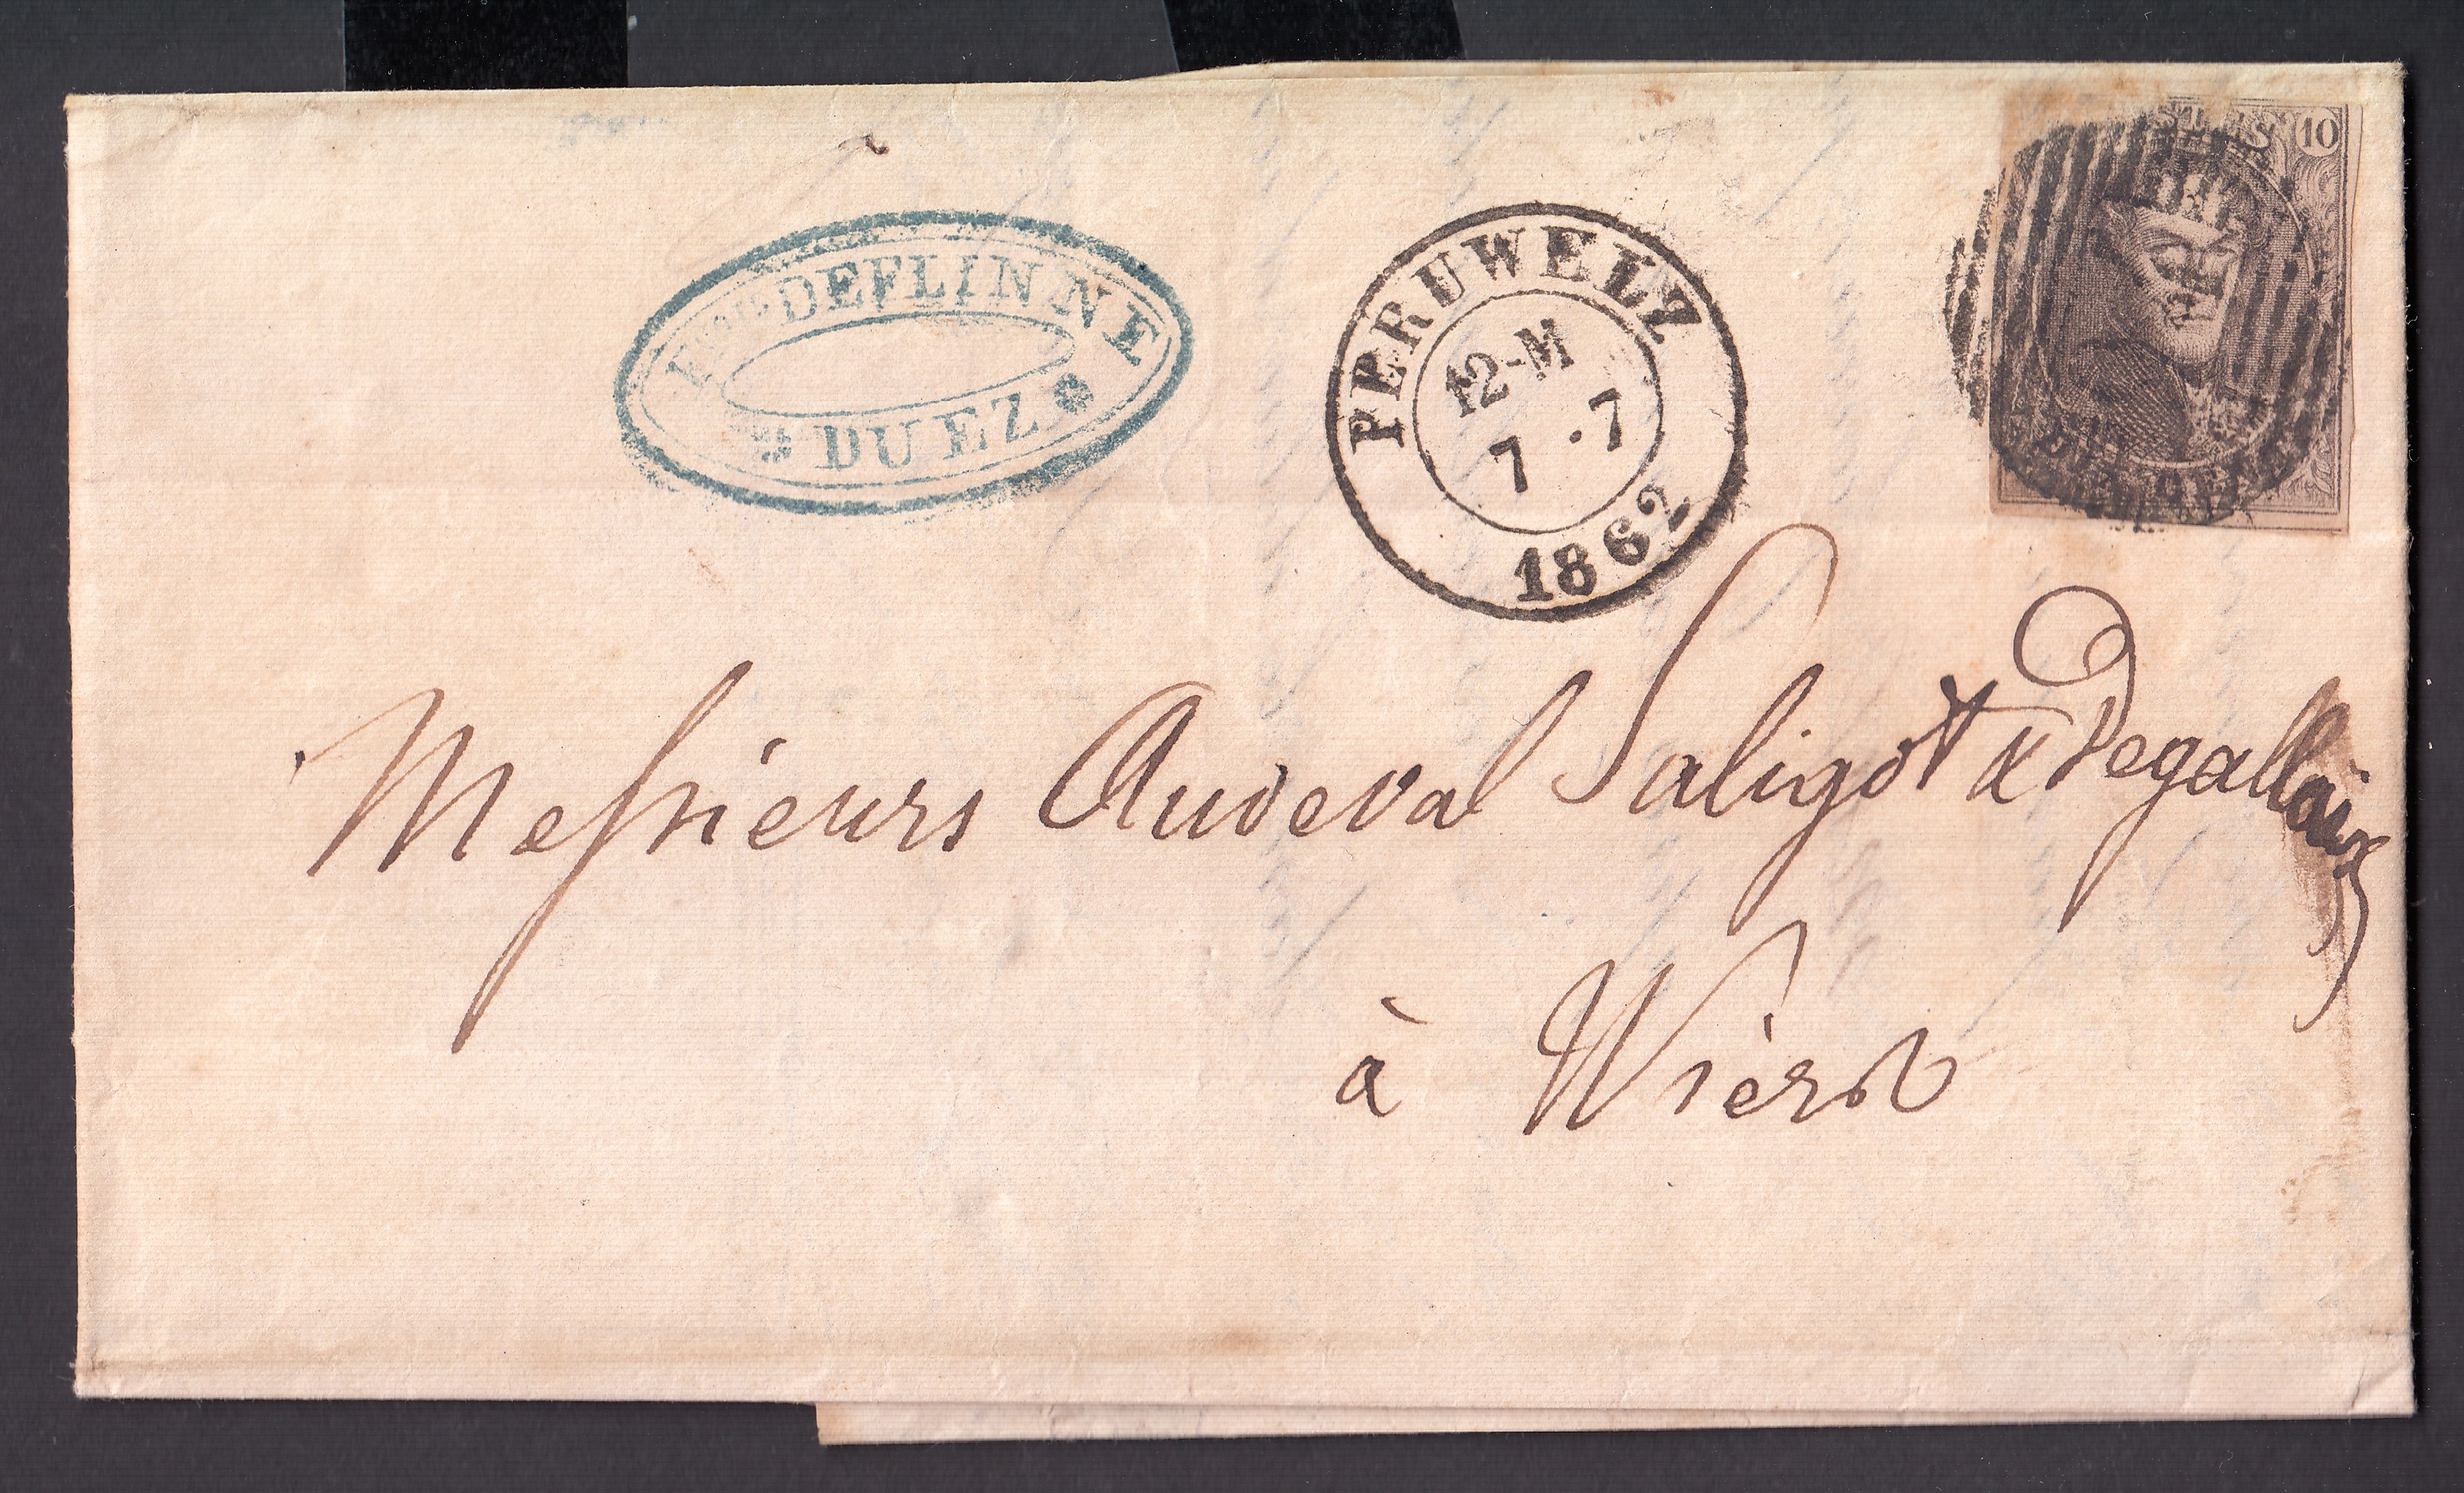 DEFLINNE
DUEZ
PERUWELZ
12-M
7 · 7
1862
10
Messieurs Audeval Saligot & Degallaix
à Wiers